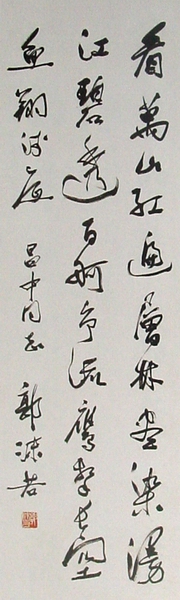 看萬山紅遍層林盡染漫
江碧透百舸爭流鷹擊長空
魚翔浅底 吕中同志 郭沫若